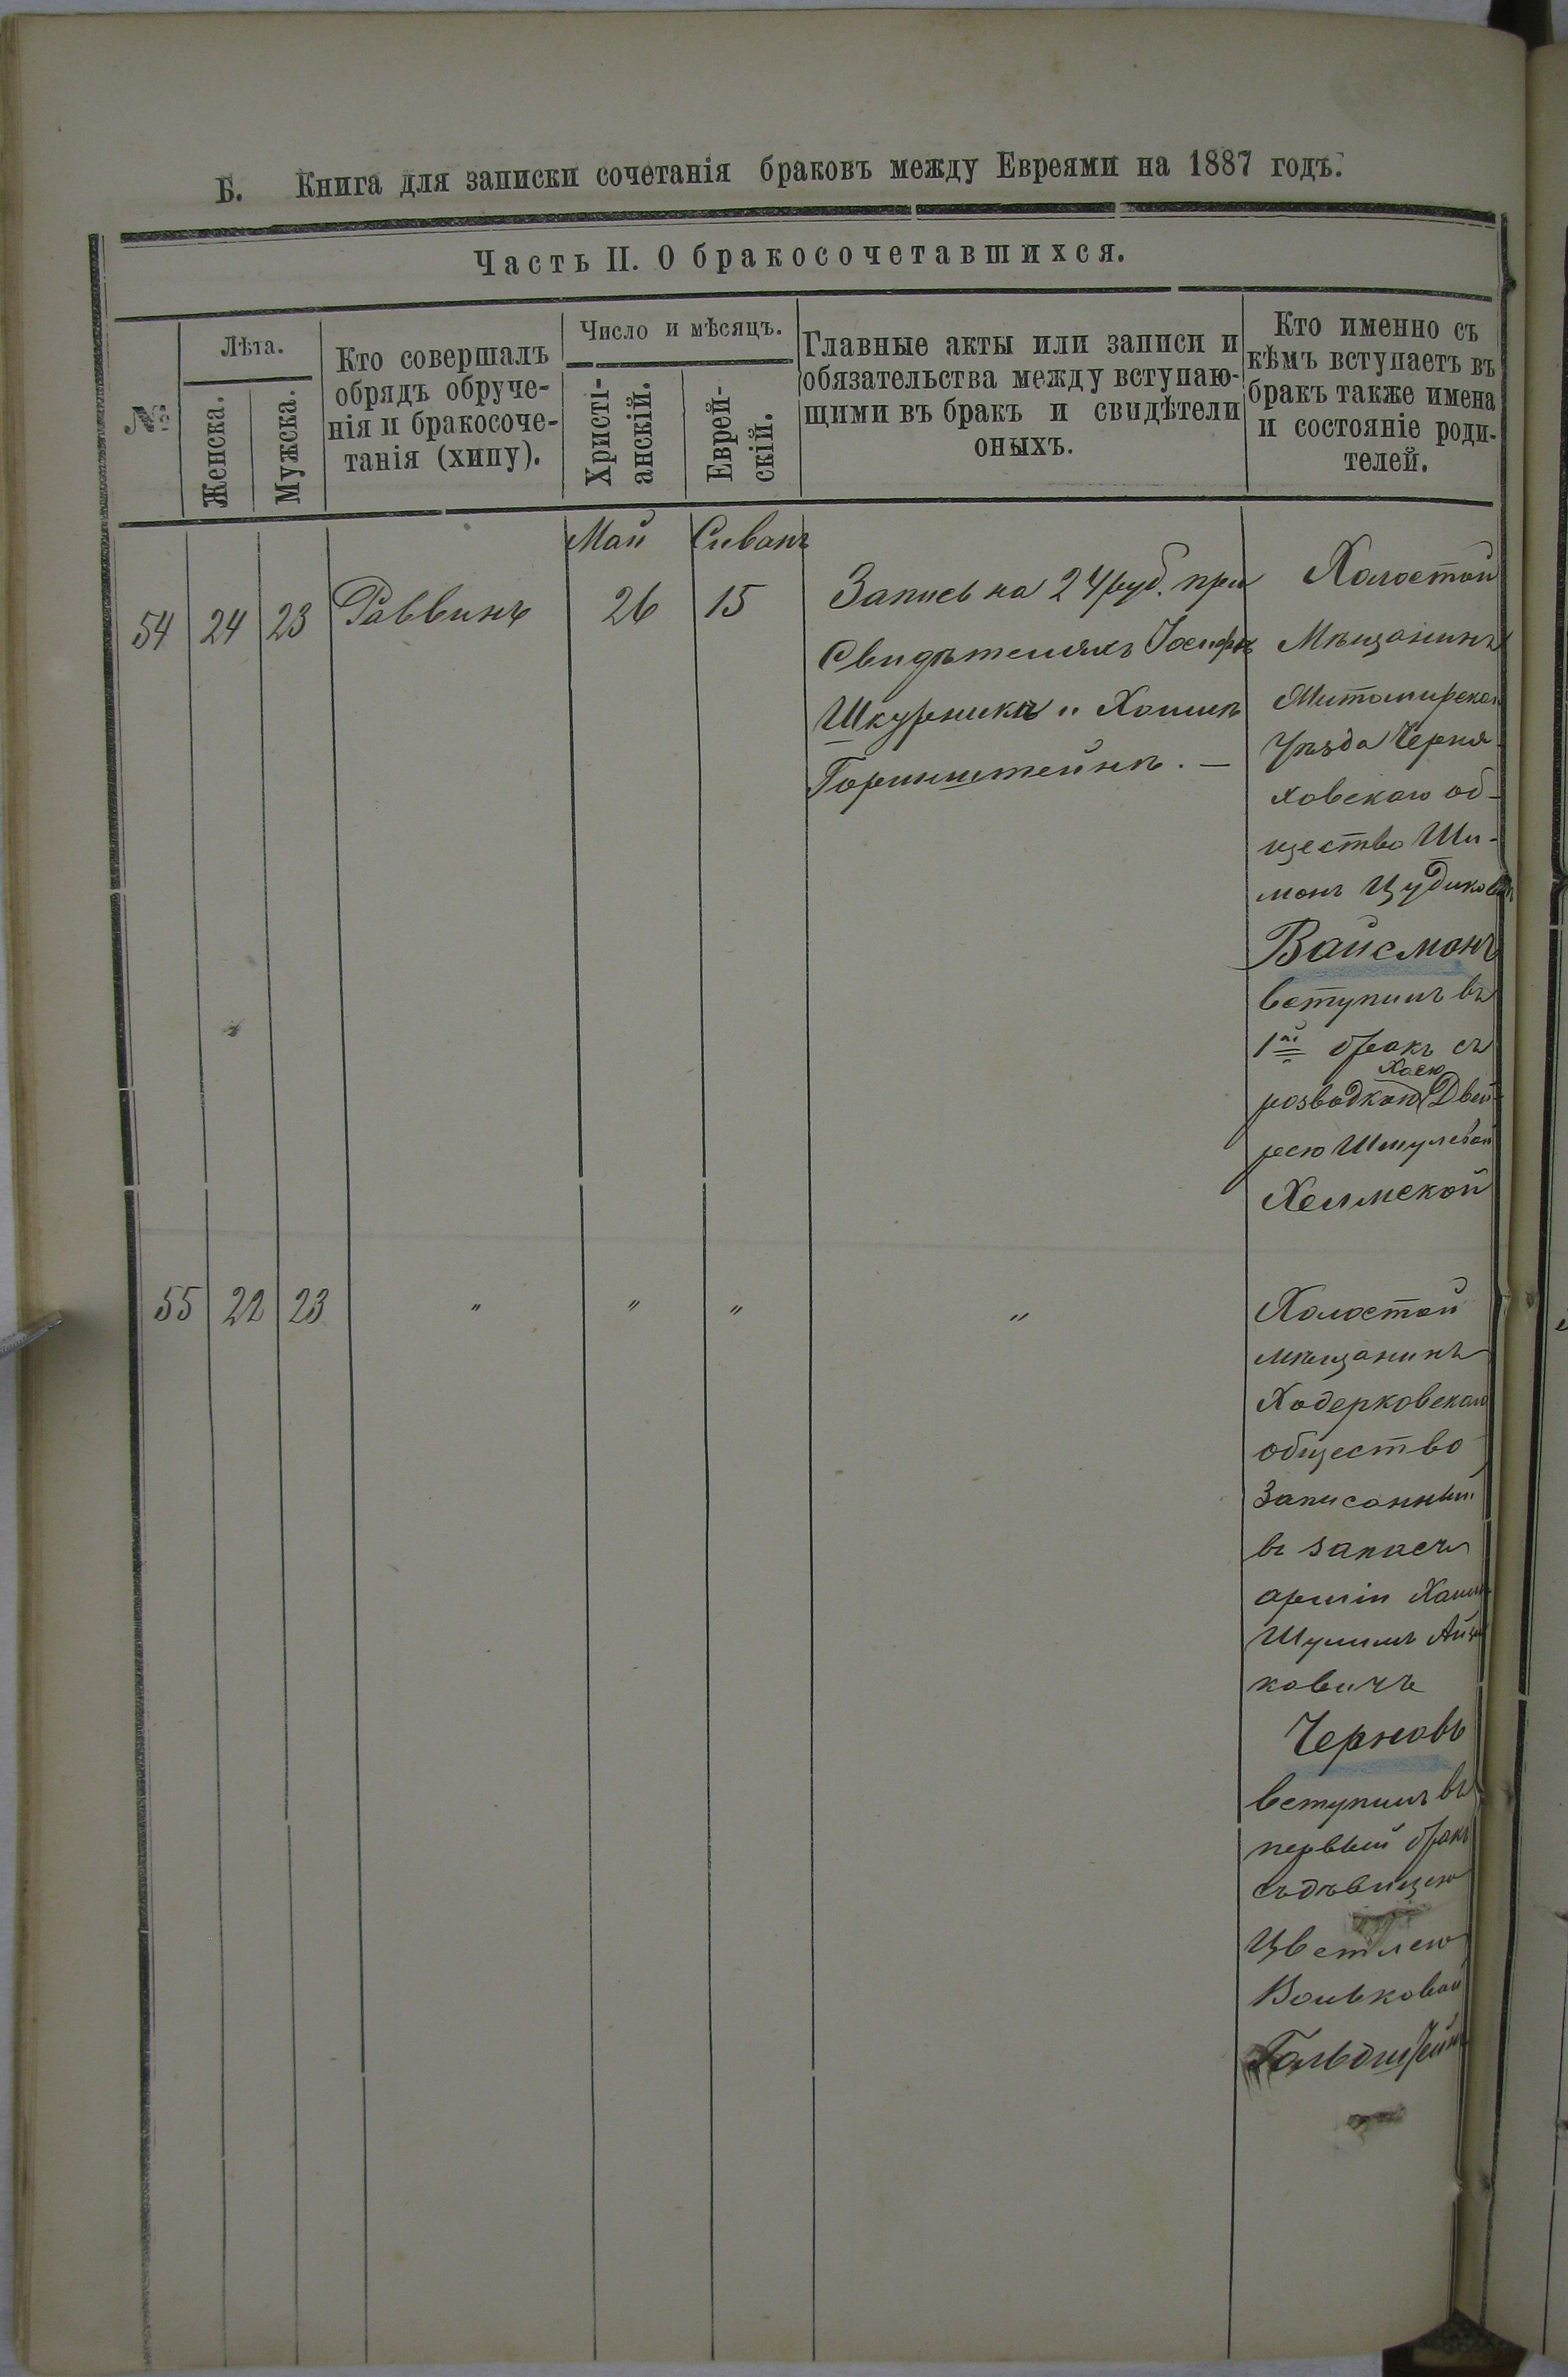 Б. Книга для записки сочетанія браковъ между Евреями на 1887 годъ.
Часть II. О бракосочетавшихся.
№
Лѣта.
Женска.
Мужска.
Кто совершалъ
обрядъ обруче-
нія и бракосоче-
танія (хипу).
Число и мѣсяцъ.
Христі-
анскій.
Еврей-
скій.
Главные акты или записи и
обязательства между вступаю-
щими въ бракъ и свидѣтели
оныхъ.
Кто именно съ
кѣмъ вступаетъ въ
бракъ также имена
и состояніе роди-
телей.
Май Сиванъ
54 24 23 Раввинъ 26 15
Запись на 24 руб. при
Свидѣтеляхъ Іосифѣ
Шкурникѣ и Хаимѣ
Горинштейнѣ. —
Холостой
Мѣщанинъ
Житомирскаго
Уѣзда Черня-
ховскаго об-
щество Ши-
монъ
Вайсманъ
вступилъ въ
1й бракъ съ
Хаею
розводкою Двей-
рею Шмулевой
Хелмской
55 22 23 " " " "
Холостой
мѣщанинъ
Ходорковскаго
общество
Записанный
въ запасъ
арміи Хаимъ
Шулимъ Айзи
ковичъ
Черновъ
вступилъ въ
первый бракъ
съ дѣвицею
Цветлею
Вольковой